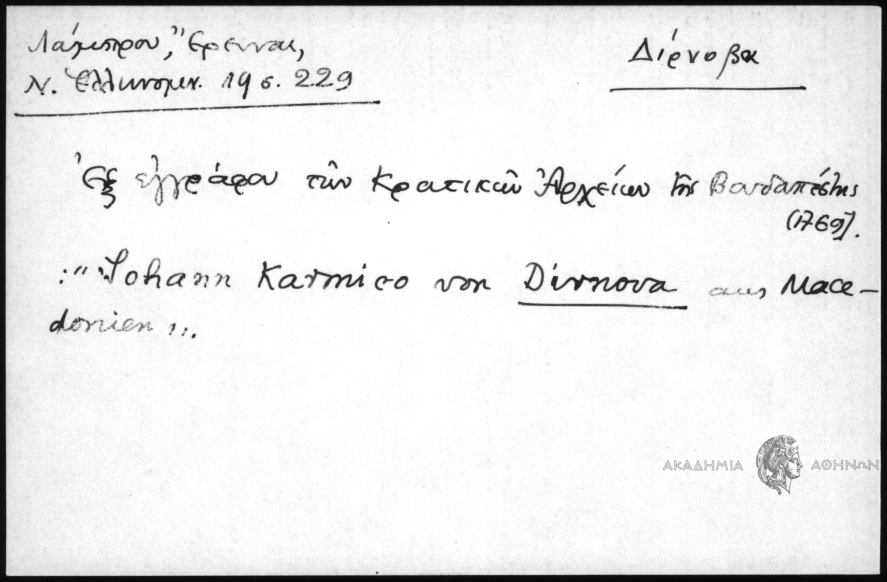 Λάμπρου, Ἔρευναι,
Ν. Ἑλληνομν. 19 σ. 229
Δίρνοβα
Ἐξ ἐγγράφου τῶν Κρατικῶν Ἀρχείων τῆς Βουδαπέστης
(1769).
:"Johann Karmico von Dirnova aus Mace-
donien".
ΑΚΑΔΗΜΙΑ ΑΘΗΝΩΝ